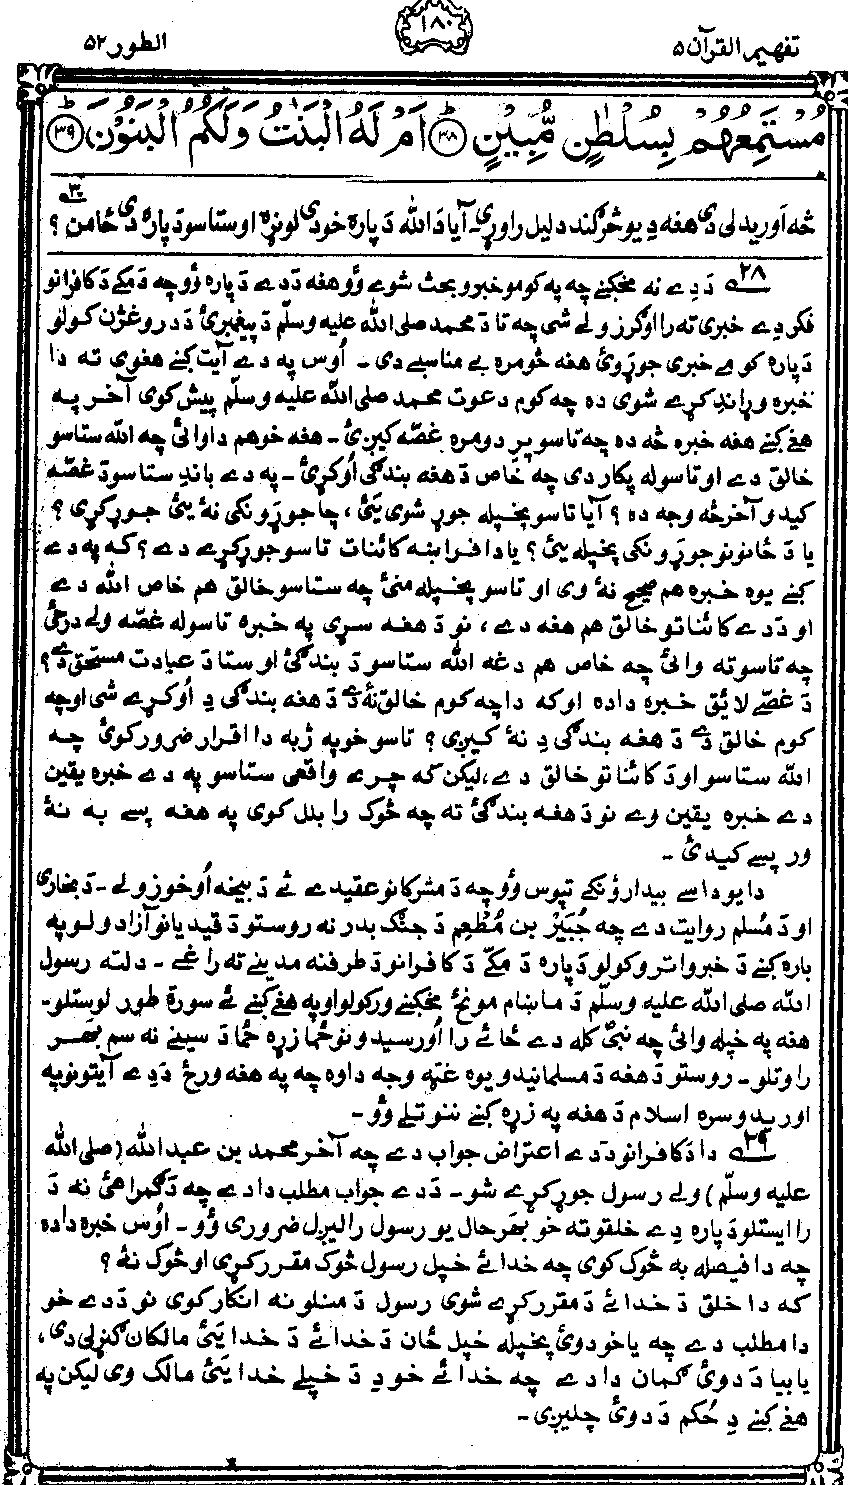 تفهیم القرآن ۵
۱۸۰
الطور ۵۲
مُسْتَمِعُهُمْ بِسُلْطٰنٍ مُّبِیْنٍ ۳۸ اَمْ لَهُ الْبَنٰتُ وَلَكُمُ الْبَنُوْنَ ۳۹
څه اَوریدلی دی هغه دِ یو څرګند دلیل راوړی۔ آیا دَ الله دَ پاره خو دی لونړه او ستاسو دَ پاره دی ځامن ؟ ۳۰
۲۸ دَ دِے نه مخکښے چه په کومو خبرو بحث شوے وُو هغه دَ دے دَ پاره وُو چه دَ مکے دَ کافرانو
فکر دِے خبرې ته را اوګرزولے شی چه تا دَ محمد صلی الله علیه وسلّم دَ پیغمبرئ دَ دروغژن کولو
دَ پاره کومے خبری جوړوئ هغه څومره بے مناسبے دی۔ اُوس په دے آیت کښے هغوی ته دا
خبره وړاندِ کړے شوی ده چه کوم دعوت محمد صلی الله علیه وسلّم پیش کوی آخر په
هغے کښے هغه خبره څه ده چه تاسو پرِ دومره غصّه کیږئ۔ هغه خو هم دا وائی چه الله ستاسو
خالق دے او تاسو له پکار دی چه خاص دَ هغه بندګی اُوکړئ۔ په دے باندِ ستاسو دَ غصّه
کیدو آخر څه وجه ده ؟ آیا تاسو پخپله جوړ شوی یَئ، چا جوړونکی نهٔ یئ جوړ کړی ؟
یا دَ ځانونو جوړونکی پخپله یئ ؟ یا دا فراښه کائنات تاسو جوړ کړے دے ؟ که په دے
کښے یوه خبره هم صحیح نهٔ وی او تاسو پخپله منئ چه ستاسو خالق هم خاص الله دے
او دَ دے کائناتو خالق هم هغه دے، نو دَ هغه سړی په خبره تاسو له غصّه ولے درځی
چه تاسو ته وائی چه خاص هم دغه الله ستاسو دَ بندګئ او ستا دَ عبادت مستحق دے؟
دَ غصّے لائق خبره دا ده او که دا چه کوم خالق نهٔ دے دَ هغه بندګی دِ اُوکړے شی او چه
کوم خالق دے دَ هغه بندګی دِ نهٔ کیږی ؟ تاسو خو په ژبه دا اقرار ضرور کوئ چه
الله ستاسو او دَ کائناتو خالق دے، لیکن که چرے واقعی ستاسو په دے خبره یقین
دے خبره یقین وے نو دَ هغه بندګئ ته چه څوک را بلل کوی په هغه پسے به نهٔ
ور پسے کیدئ۔
دا یو داسے بیدارؤنکے تپوس وُو چه دَ مشرکانو عقیدے ئے دَ بیخه اُوخوزولے۔ دَ بخاری
او دَ مُسلم روایت دے چه جُبَیْرْ بن مُطْعِم دَ جنګ بدر نه روستو دَ قیدیانو آزادولو په
باره کښے دَ خبرو اترو کولو دَ پاره دَ مکّے دَ کافرانو دَ طرفنه مدینے ته راغے۔ دلته رسول
الله صلی الله علیه وسلّم دَ ماښام مونځ مخکښے ورکولو او په هغے کښے ئے سورة طور لوستلو۔
هغه په خپله وائی چه نبیؐ کله دے ځائے را اُورسیدو نو څما زړه څما دَ سینے نه سم بهر
راوتلو۔ روستو دَ هغه دَ مسلمانیدو یوه غټه وجه دا وه چه په هغه ورځ دَ دِے آیتونو په
اوریدو سره اسلام دَ هغه په زړه کښے ننوتلے وُو۔
۲۹ دا دَ کافرانو دَ دے اعتراض جواب دے چه آخر محمد بن عبد الله (صلی الله
علیه وسلّم) ولے رسول جوړ کړے شو۔ دَ دے جواب مطلب دا دے چه دَ ګمراهئ نه دَ
را ایستلو دَ پاره دِے خلقو ته خو بهرحال یو رسول را لیږل ضروری وُو۔ اوُس خبره دا ده
چه دا فیصله به څوک کوی چه خدائے خپل رسول څوک مقرر کړی او څوک نهٔ ؟
که دا خلق دَ خدائے دَ مقرر کړے شوی رسول دَ منلو نه انکار کوی نو دَ دے خو
دا مطلب دے چه یا خو دوئ پخپله خپل ځان دَ خدائے دَ خدایئ مالکان ګنړلی دی،
یا بیا دَ دوئ ګمان دا دے چه خدائے خو دِ دَ خپلے خدایئ مالک وی لیکن په
هغے کښے دِ حُکم دَ دوئ چلیږی۔